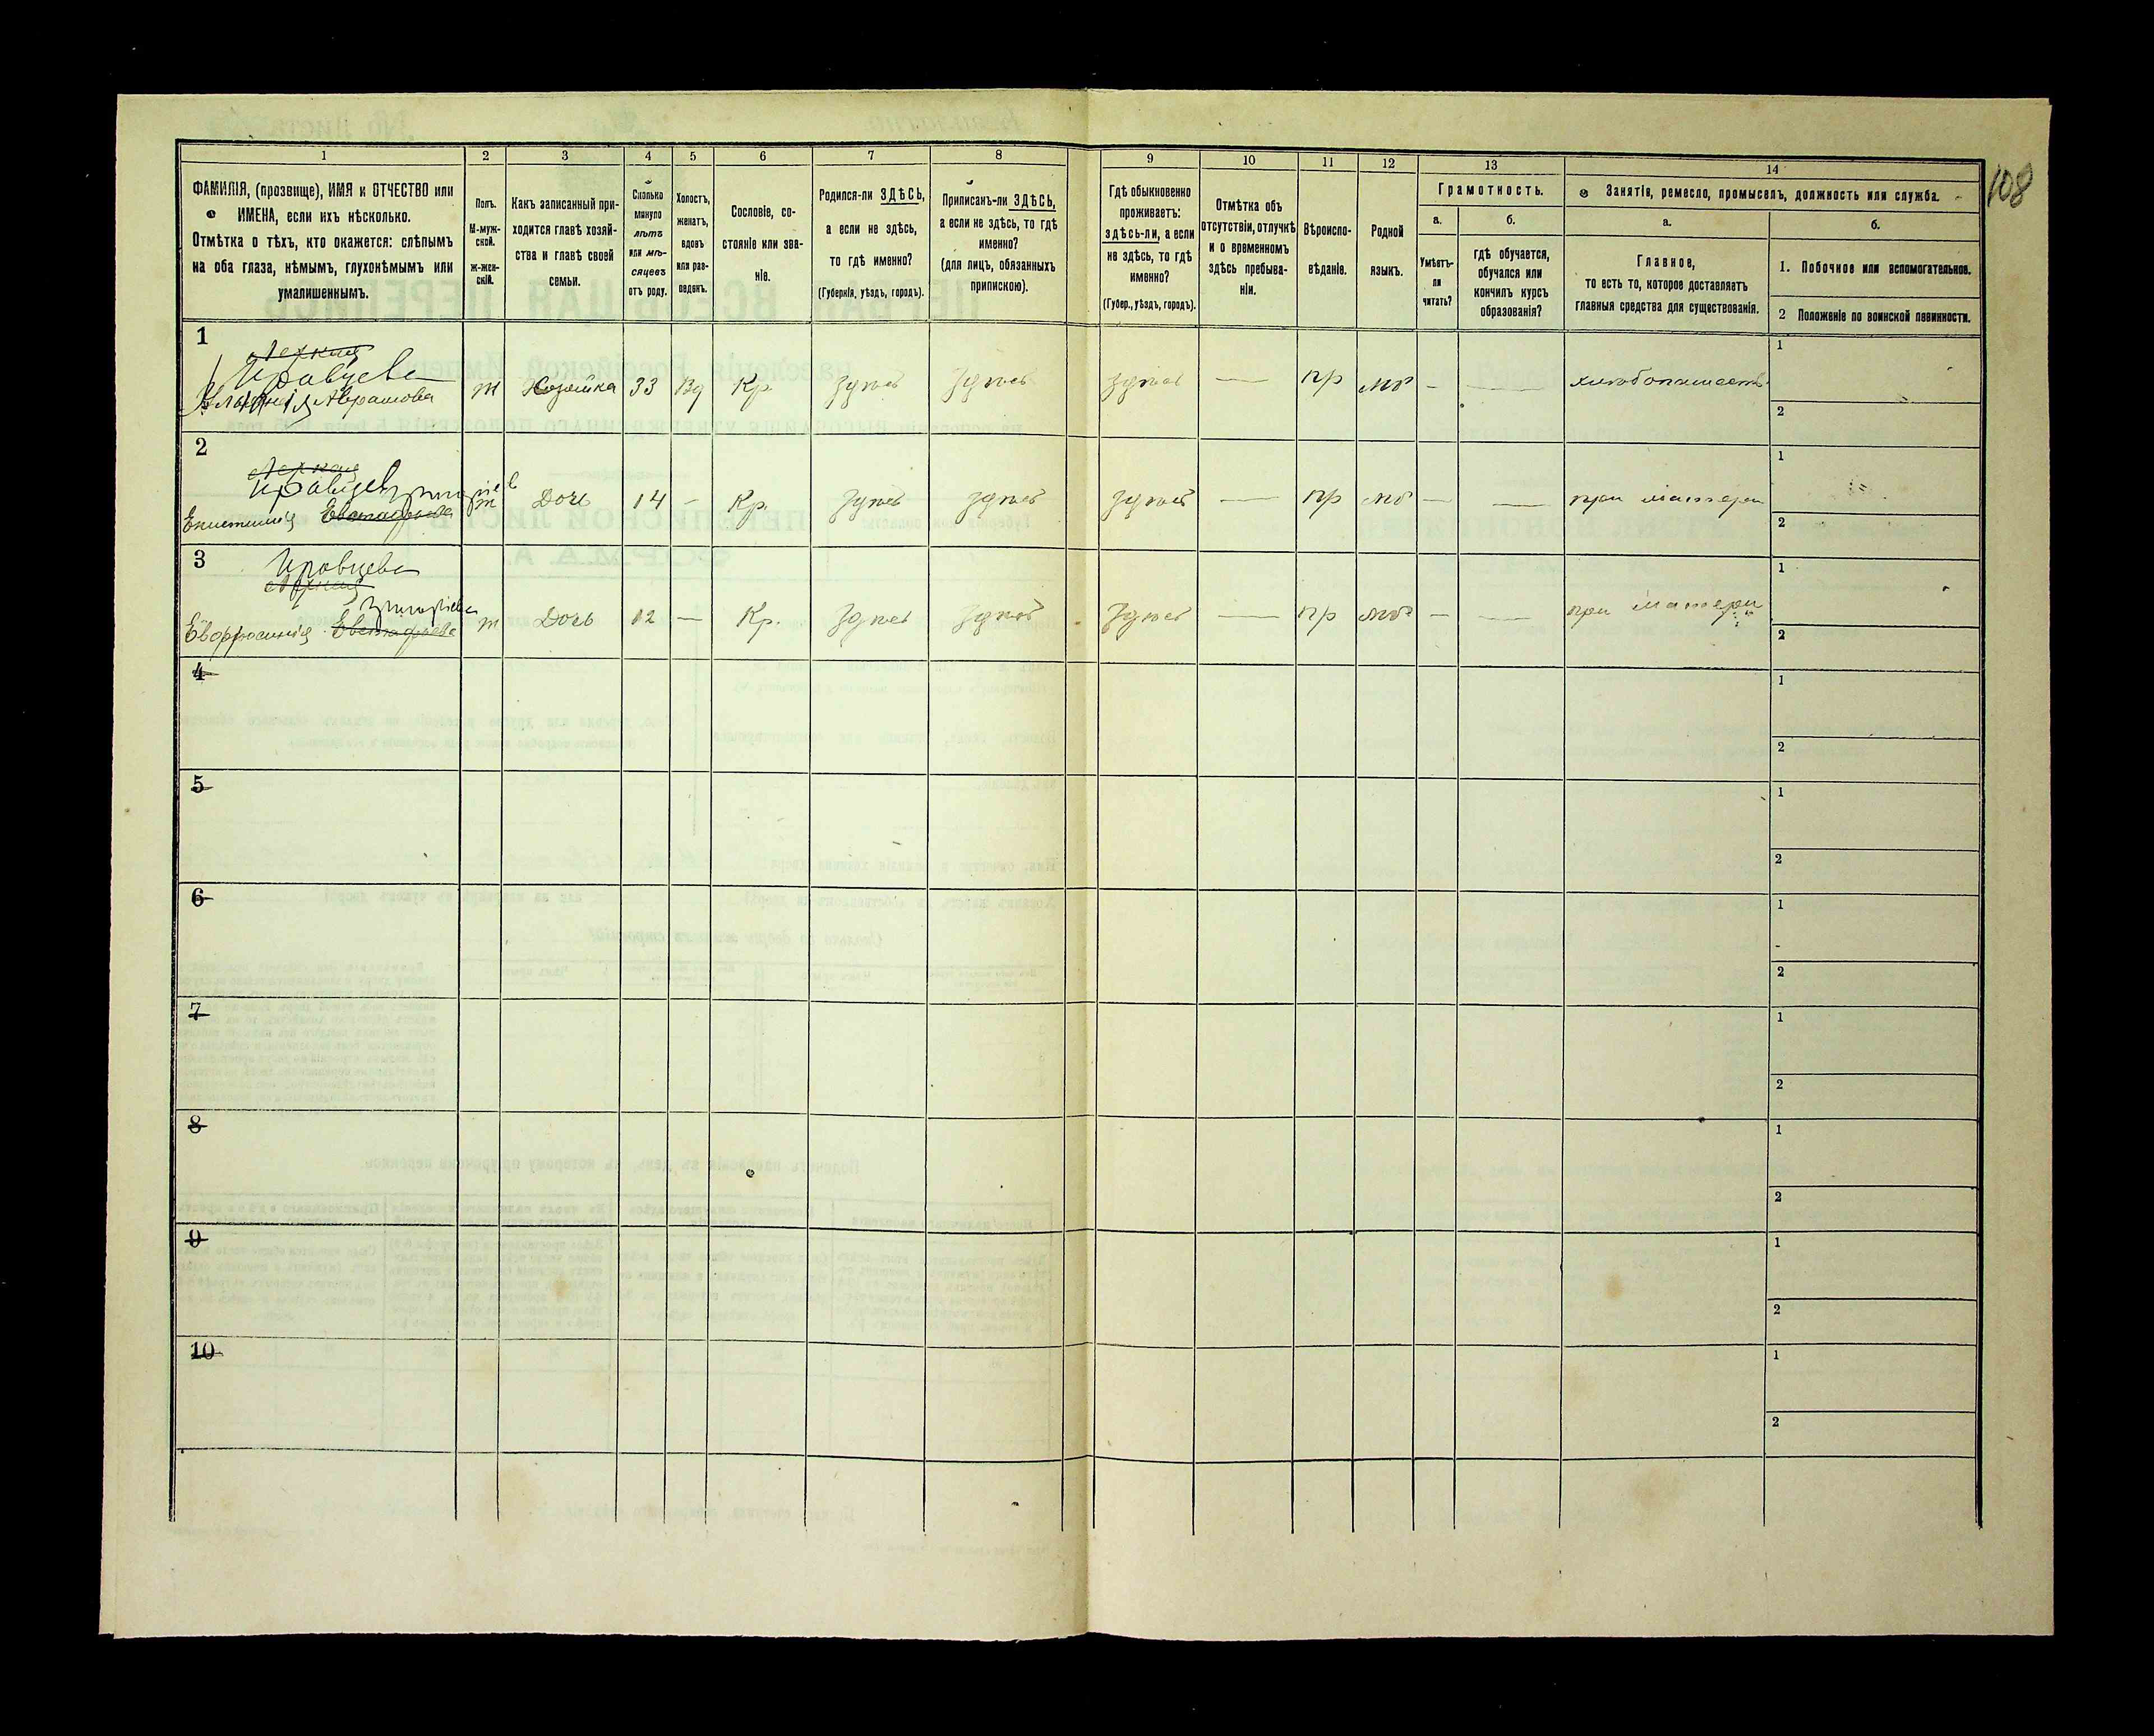 108
1
2
3
4
5
6
7
8
9
10
11
12
13
14
ФАМИЛІЯ, (прозвище), ИМЯ и ОТЧЕСТВО или
ИМЕНА, если ихъ нѣсколько.
Отмѣтка о тѣхъ, кто окажется: слѣпымъ
на оба глаза, нѣмымъ, глухонѣмымъ или
умалишеннымъ.
Полъ.
М-муж-
ской.
ж-жен-
скій.
Какъ записанный при-
ходится главѣ хозяй-
ства и главѣ своей
семьи.
Сколько
минуло
лѣтъ
или мѣ-
сяцевъ
отъ роду.
Холостъ,
женатъ,
вдовъ
или раз-
веденъ.
Сословіе, со-
стояніе или зва-
ніе.
Родился-ли ЗДѢСЬ,
а если не здѣсь,
то гдѣ именно?
(Губернія, уѣздъ, городъ).
Приписанъ-ли ЗДѢСЬ,
а если не здѣсь, то гдѣ
именно?
(для лицъ, обязанныхъ
припискою).
Гдѣ обыкновенно
проживаетъ:
здѣсь-ли, а если
не здѣсь, то гдѣ
именно?
(Губер., уѣздъ, городъ).
Отмѣтка объ
отсутствіи, отлучкѣ
и о временномъ
здѣсь пребыва-
ніи.
Вѣроиспо-
вѣданіе.
Родной
языкъ.
Грамотность.
а.
Умѣетъ-
ли
читать?
б.
гдѣ обучается,
обучался или
кончилъ курсъ
образованія?
Занятіе, ремесло, промыселъ, должность или служба.
а.
Главное,
то есть то, которое доставляетъ
главныя средства для существованія.
б.
1. Побочное или вспомогательное.
2 Положеніе по воинской повинности.
1
Кравцева
Аврамова
ж Хозяйка 33 Вд Кр. Здѣсь Здѣсь Здѣсь — пр мр — — хлѣбопашество
1
2
2
Епистимія Евстафьева
ж Дочь 14 — Кр. Здѣсь Здѣсь Здѣсь — пр мр — — при матери
1
2
3
Кравцева
Григорьева
Евфросинія Евстафьева ж Дочь 12 — Кр. Здѣсь Здѣсь Здѣсь — пр мр — — при матери
1
2
4
1
2
5
1
2
6
1
2
7
1
2
8
1
2
9
1
2
10
1
2